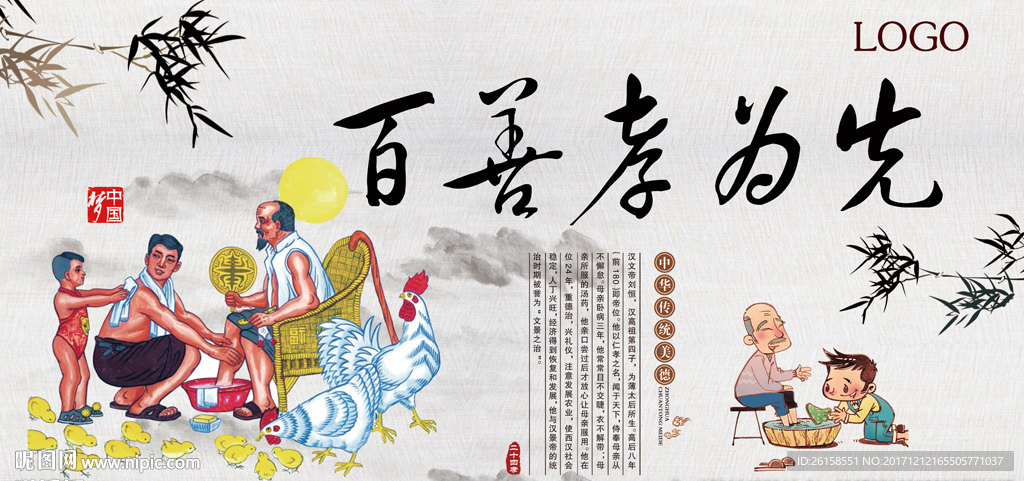 LOGO
百善孝为先
中国梦
中华传统美德
ZHONGHUA
CHUANTONG MEIDE
汉文帝刘恒，汉高祖第四子，为薄太后所生。高后八年
（前180）即帝位。他以仁孝之名，闻于天下，侍奉母亲从
不懈怠。母亲卧病三年，他常常目不交睫，衣不解带；母
亲所服的汤药，他亲口尝过后才放心让母亲服用。他在
位24年，重德治，兴礼仪，注意发展农业，使西汉社会
稳定，人丁兴旺，经济得到恢复和发展，他与汉景帝的统
治时期被誉为“文景之治”。
二十四孝
昵图网 www.nipic.com
ID:26158551 NO:20171212165505771037